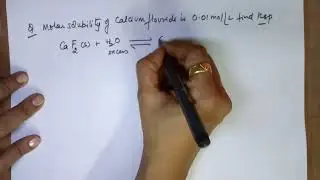 Q Molar solubility of Calcium flouride is 0.01 mol/L find Ksp
CaF2(s) + H2O ⇌
excess